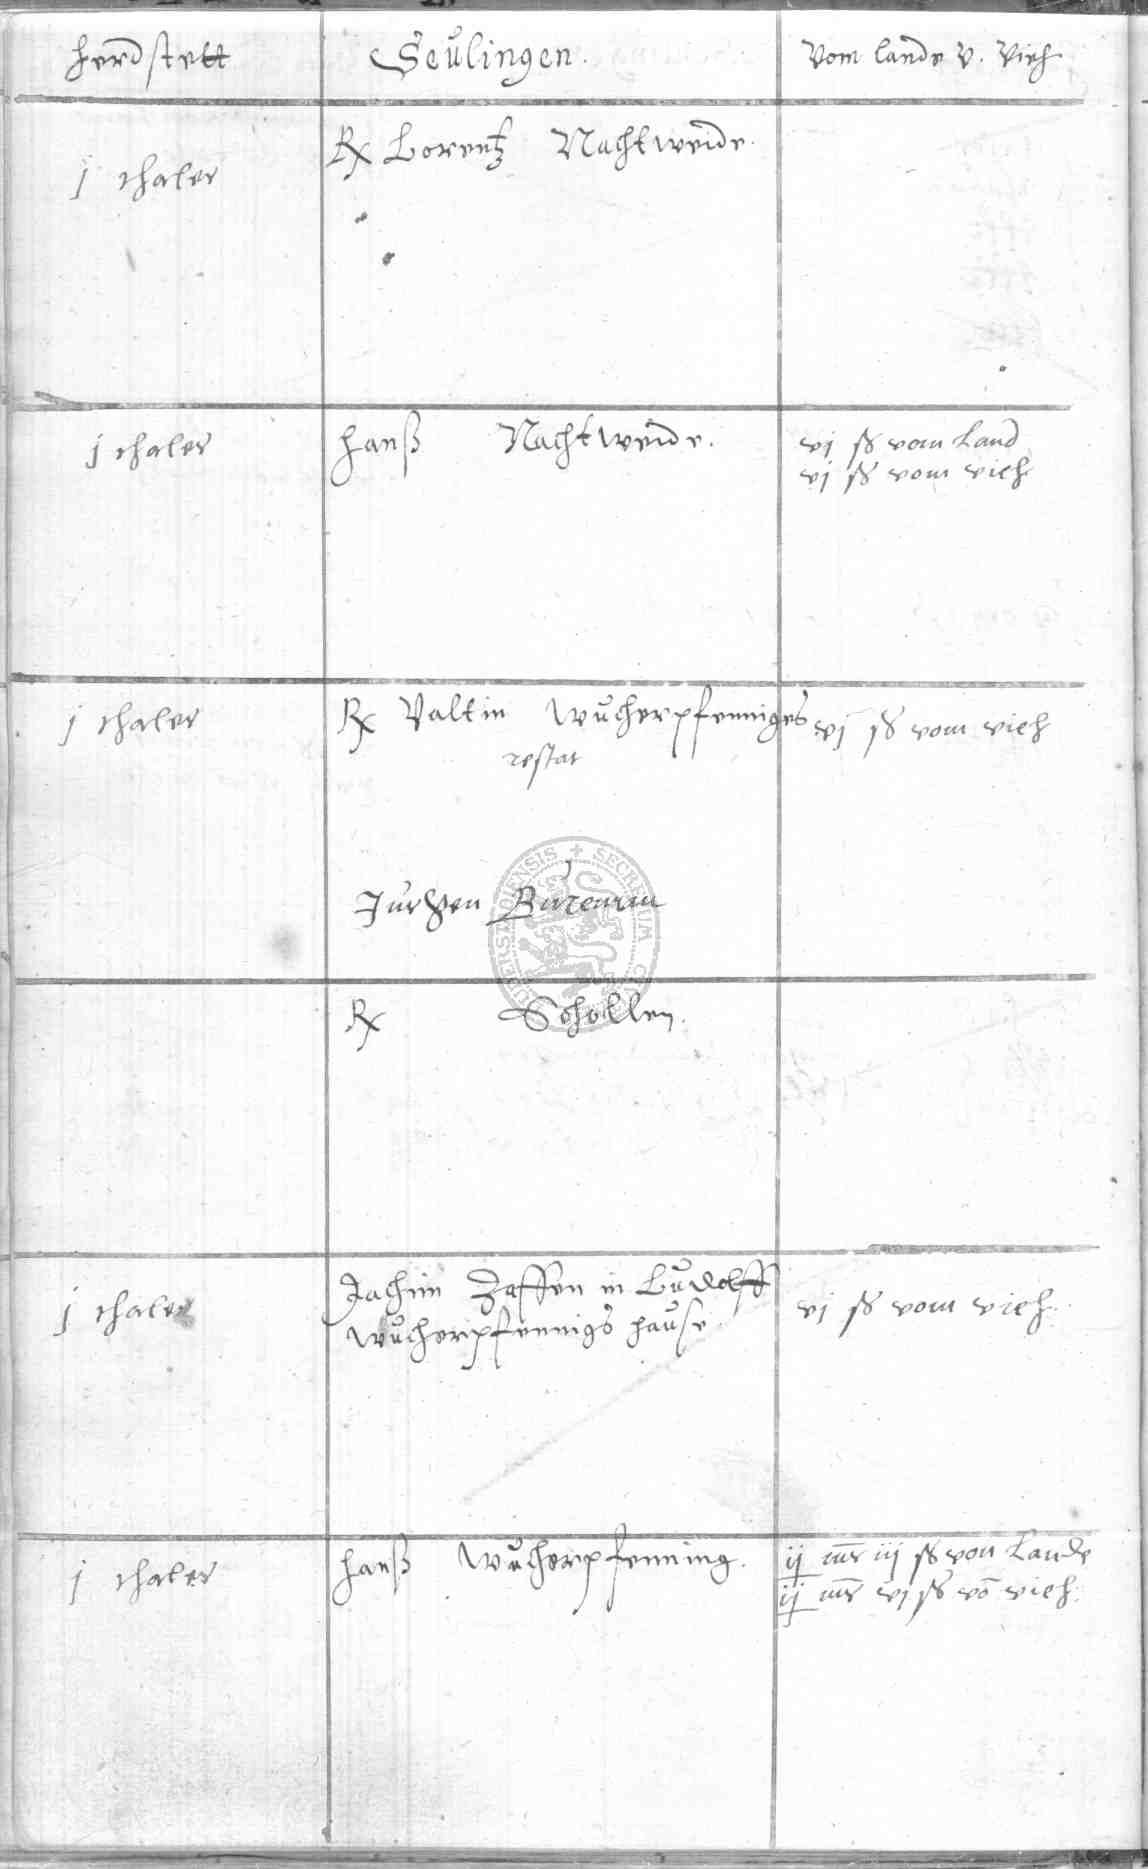 herdstett Seulingen. Vom lande v. Vieh
j thaler Rx Lorentz Nachtweide.
j thaler Hanß Nachtweide. vj ß vom Land
vj ß vom vieh
j thaler Rx Valtin Wucherpfenniges vj ß vom vieh
restat
Jurgen
Rx Schollen.
j thaler Jachim in Ludolff vj ß vom vieh.
Wucherpfennigs hause.
j thaler Hanß Wucherpfenning. ij mr iij ß von Lande
ij mr vj ß vō vieh.
SECRETUM